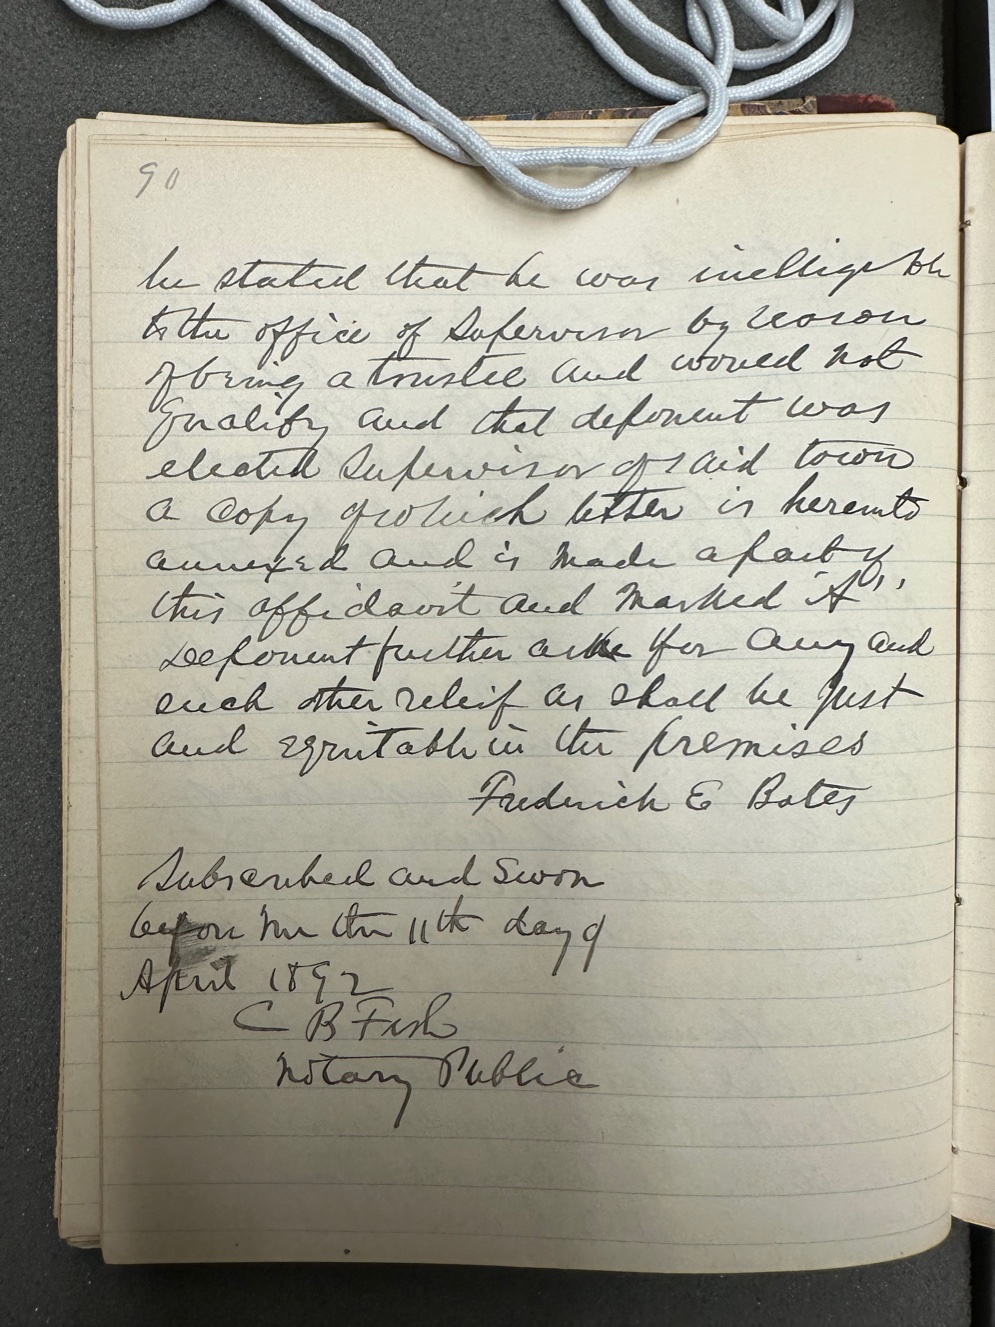 90
he stated that he was inelligeble
to the office of Supervisor by reason
of being a trustee and would not
qualify and that deponent was
elected Supervisor of said town
a copy of which letter is hereunto
annexed and is made a part of
this affidavit and marked "A",
Deponent further asks for any and
such other releif as shall be just
and equitable in the premises
Frederick E Bates
Subscribed and Sworn
before me the 11th day of
April 1892
C B Fish
Notary Public